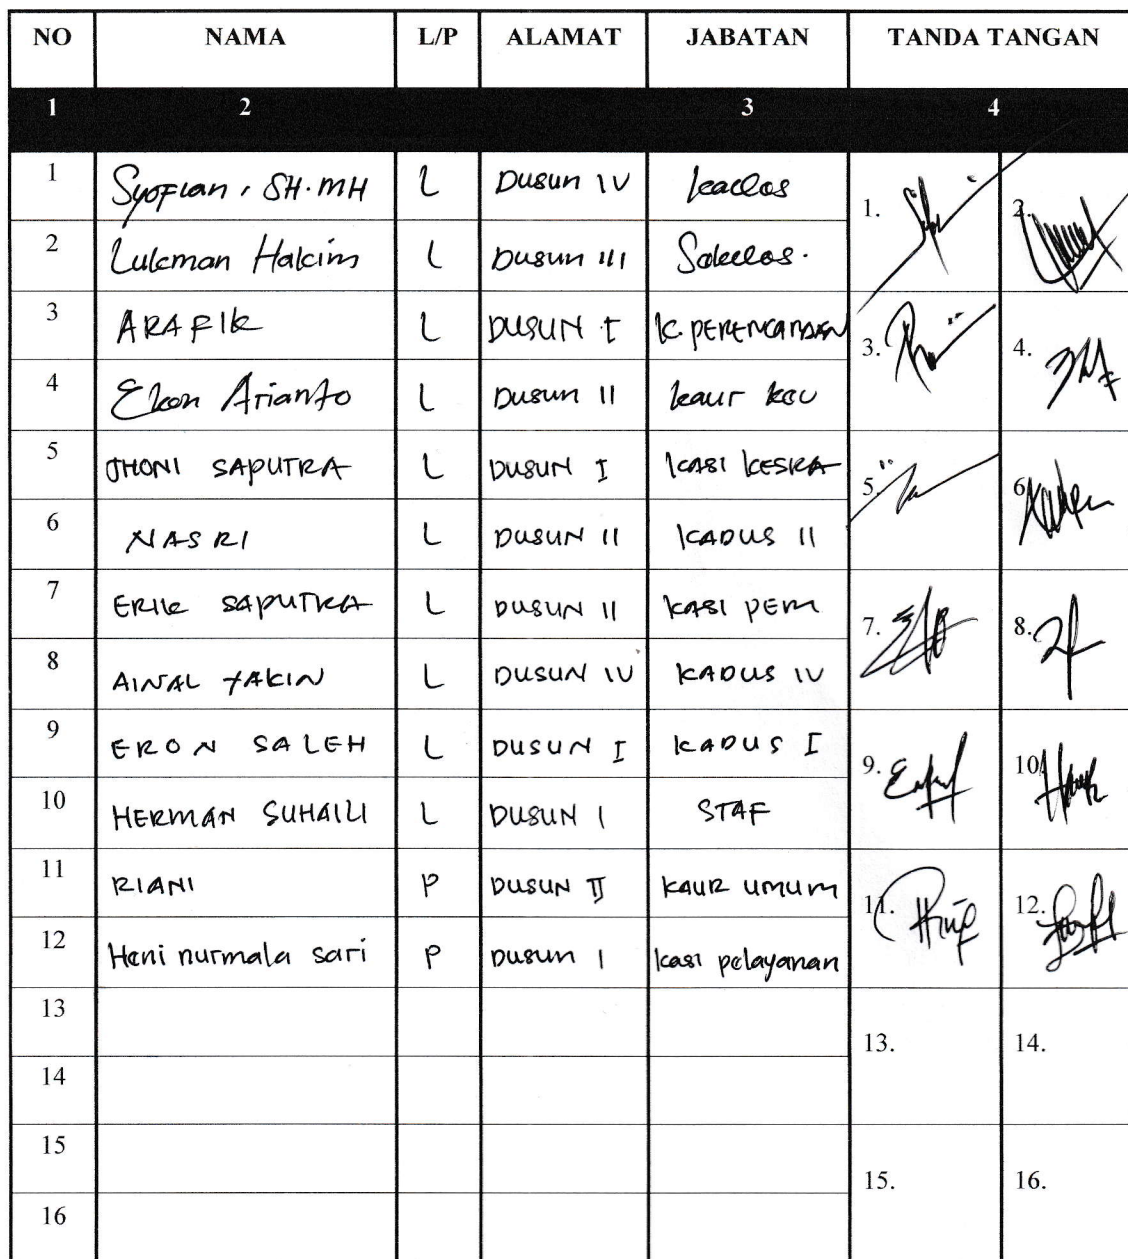 NO NAMA L/P ALAMAT JABATAN TANDA TANGAN
1 2 3 4
1 Syofian, SH.MH L Dusun IV kades 1. 2.
2 Lukman Hakim L Dusun III Sekdes.
3 ARAFIK L DUSUN I K. PERENCANAAN 3. 4.
4 Ekon Arianto L Dusun II kaur keu
5 JHONI SAPUTRA L DUSUN I KASI KESRA 5. 6
6 NASRI L DUSUN II KADUS II
7 ERIK SAPUTRA L DUSUN II KASI PEM 7. 8.
8 AINAL YAKIN L DUSUN IV KADUS IV
9 ERON SALEH L DUSUN I KADUS I 9. 10
10 HERMAN SUHAILI L DUSUN I STAF
11 RIANI P DUSUN II KAUR UMUM 11. 12.
12 Heni nurmala sari P Dusun I kasi pelayanan
13 13. 14.
14
15 15. 16.
16